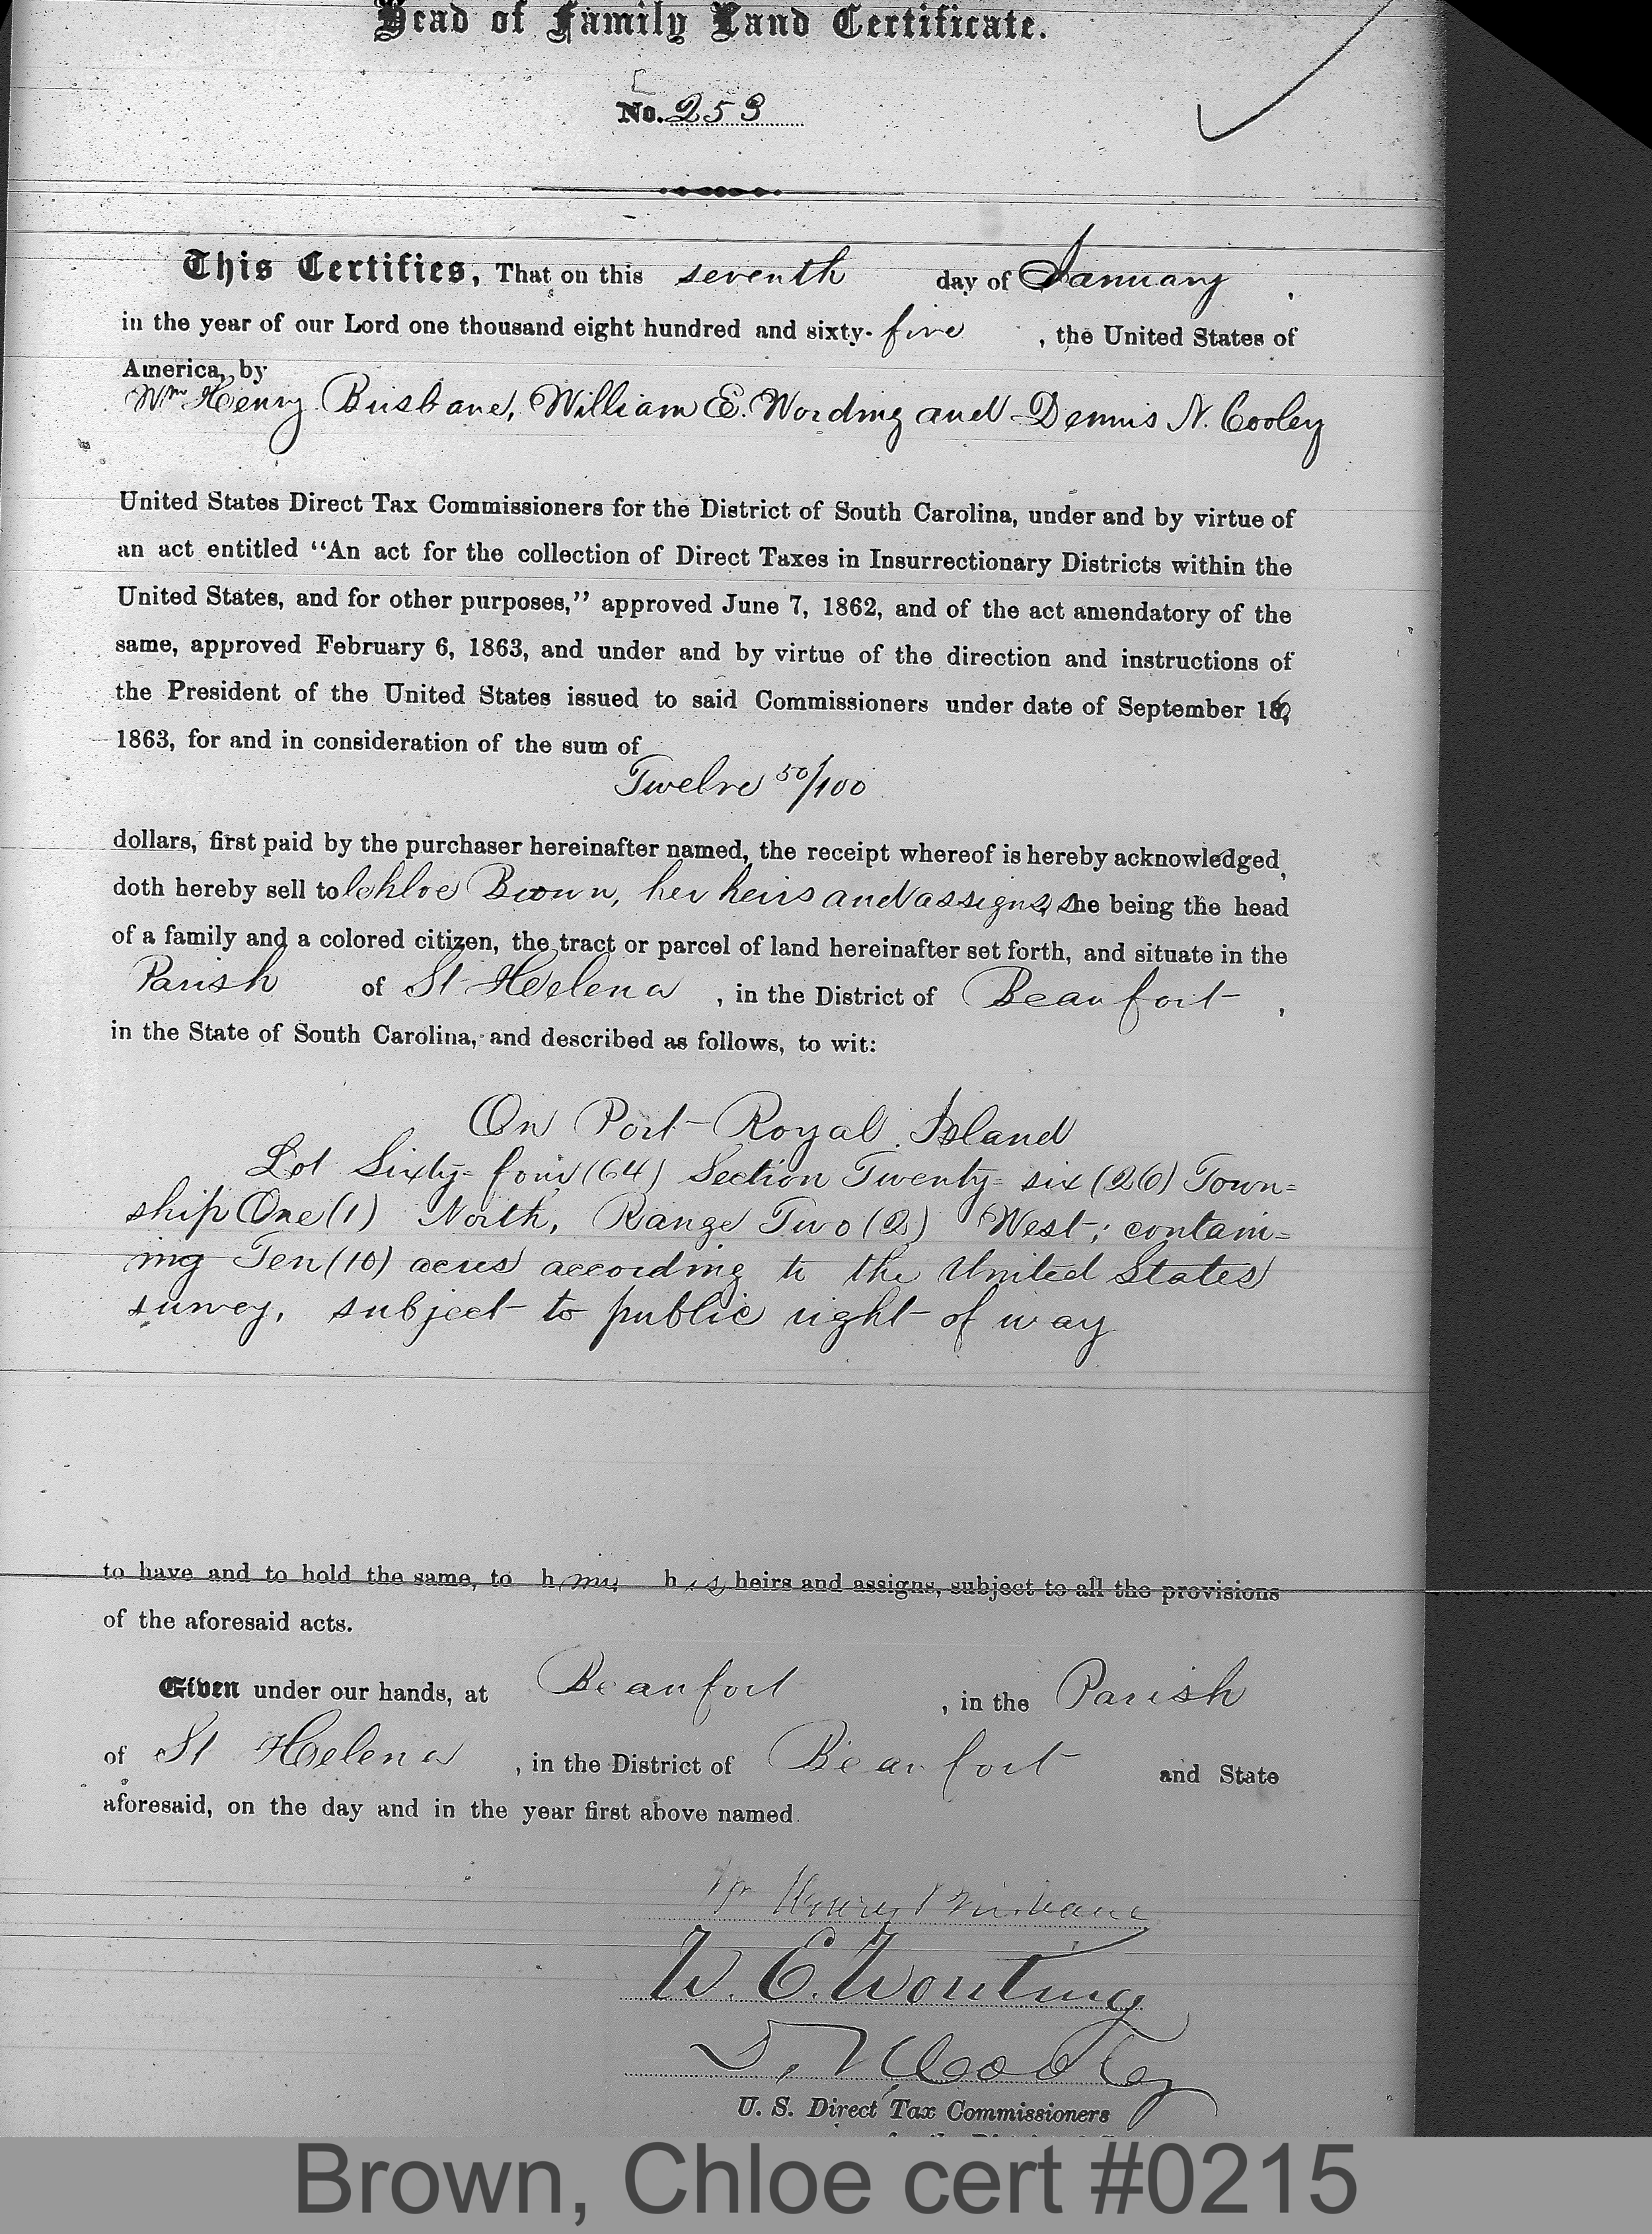 Head of Family Land Certificate.
No. 253
This Certifies, That on this seventh day of January,
in the year of our Lord one thousand eight hundred and sixty-five, the United States of
America, by
Wm Henry Brisbane, William E. Wording and Dennis N. Cooley
United States Direct Tax Commissioners for the District of South Carolina, under and by virtue of
an act entitled "An act for the collection of Direct Taxes in Insurrectionary Districts within the
United States, and for other purposes," approved June 7, 1862, and of the act amendatory of the
same, approved February 6, 1863, and under and by virtue of the direction and instructions of
the President of the United States issued to said Commissioners under date of September 16,
1863, for and in consideration of the sum of
Twelve 50/100
dollars, first paid by the purchaser hereinafter named, the receipt whereof is hereby acknowledged,
doth hereby sell to Chloe Brown, her heirs and assigns, she being the head
of a family and a colored citizen, the tract or parcel of land hereinafter set forth, and situate in the
Parish of St Helena, in the District of Beaufort,
in the State of South Carolina, and described as follows, to wit:
On Port Royal Island
Lot Sixty-four (64) Section Twenty-six (26) Town=
ship One (1) North, Range Two (2) West; contain=
ing Ten (10) acres according to the United States
survey, subject to public right of way
to have and to hold the same, to h his heirs and assigns, subject to all the provisions
of the aforesaid acts.
Given under our hands, at Beaufort, in the Parish
of St Helena, in the District of Beaufort and State
aforesaid, on the day and in the year first above named.
Wm Henry Brisbane
W. E. Wording
D. N. Cooley
U. S. Direct Tax Commissioners
Brown, Chloe cert #0215